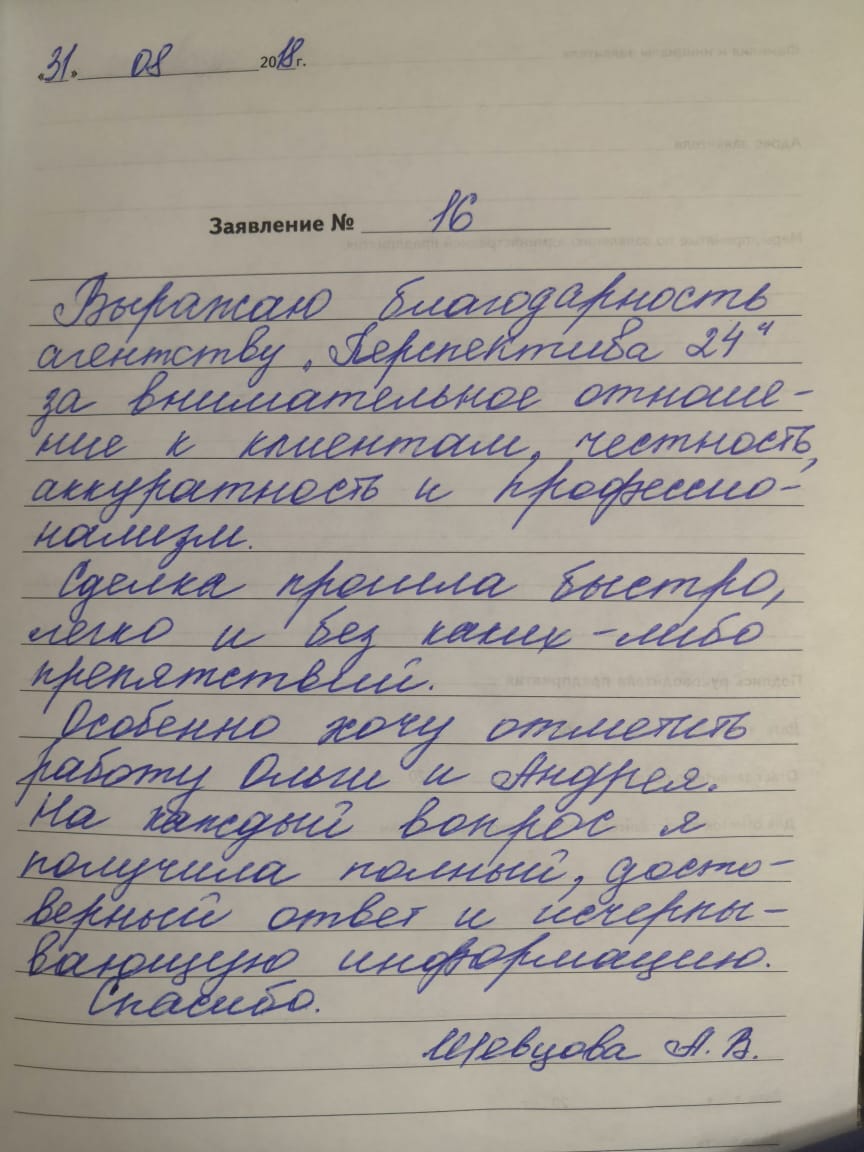 «31» 08 2018г.
Заявление № 16
Выражаю благодарность
агентству „Перспектива 24"
за внимательное отноше-
ние к клиентам, честность,
аккуратность и професcио-
нализм.
Сделка прошла быстро,
легко и без каких-либо
препятствий.
Особенно хочу отметить
работу Ольги и Андрея.
На каждый вопрос я
получила полный, досто-
верный ответ и исчерпы-
вающую информацию.
Спасибо.
Шевцова А.В.